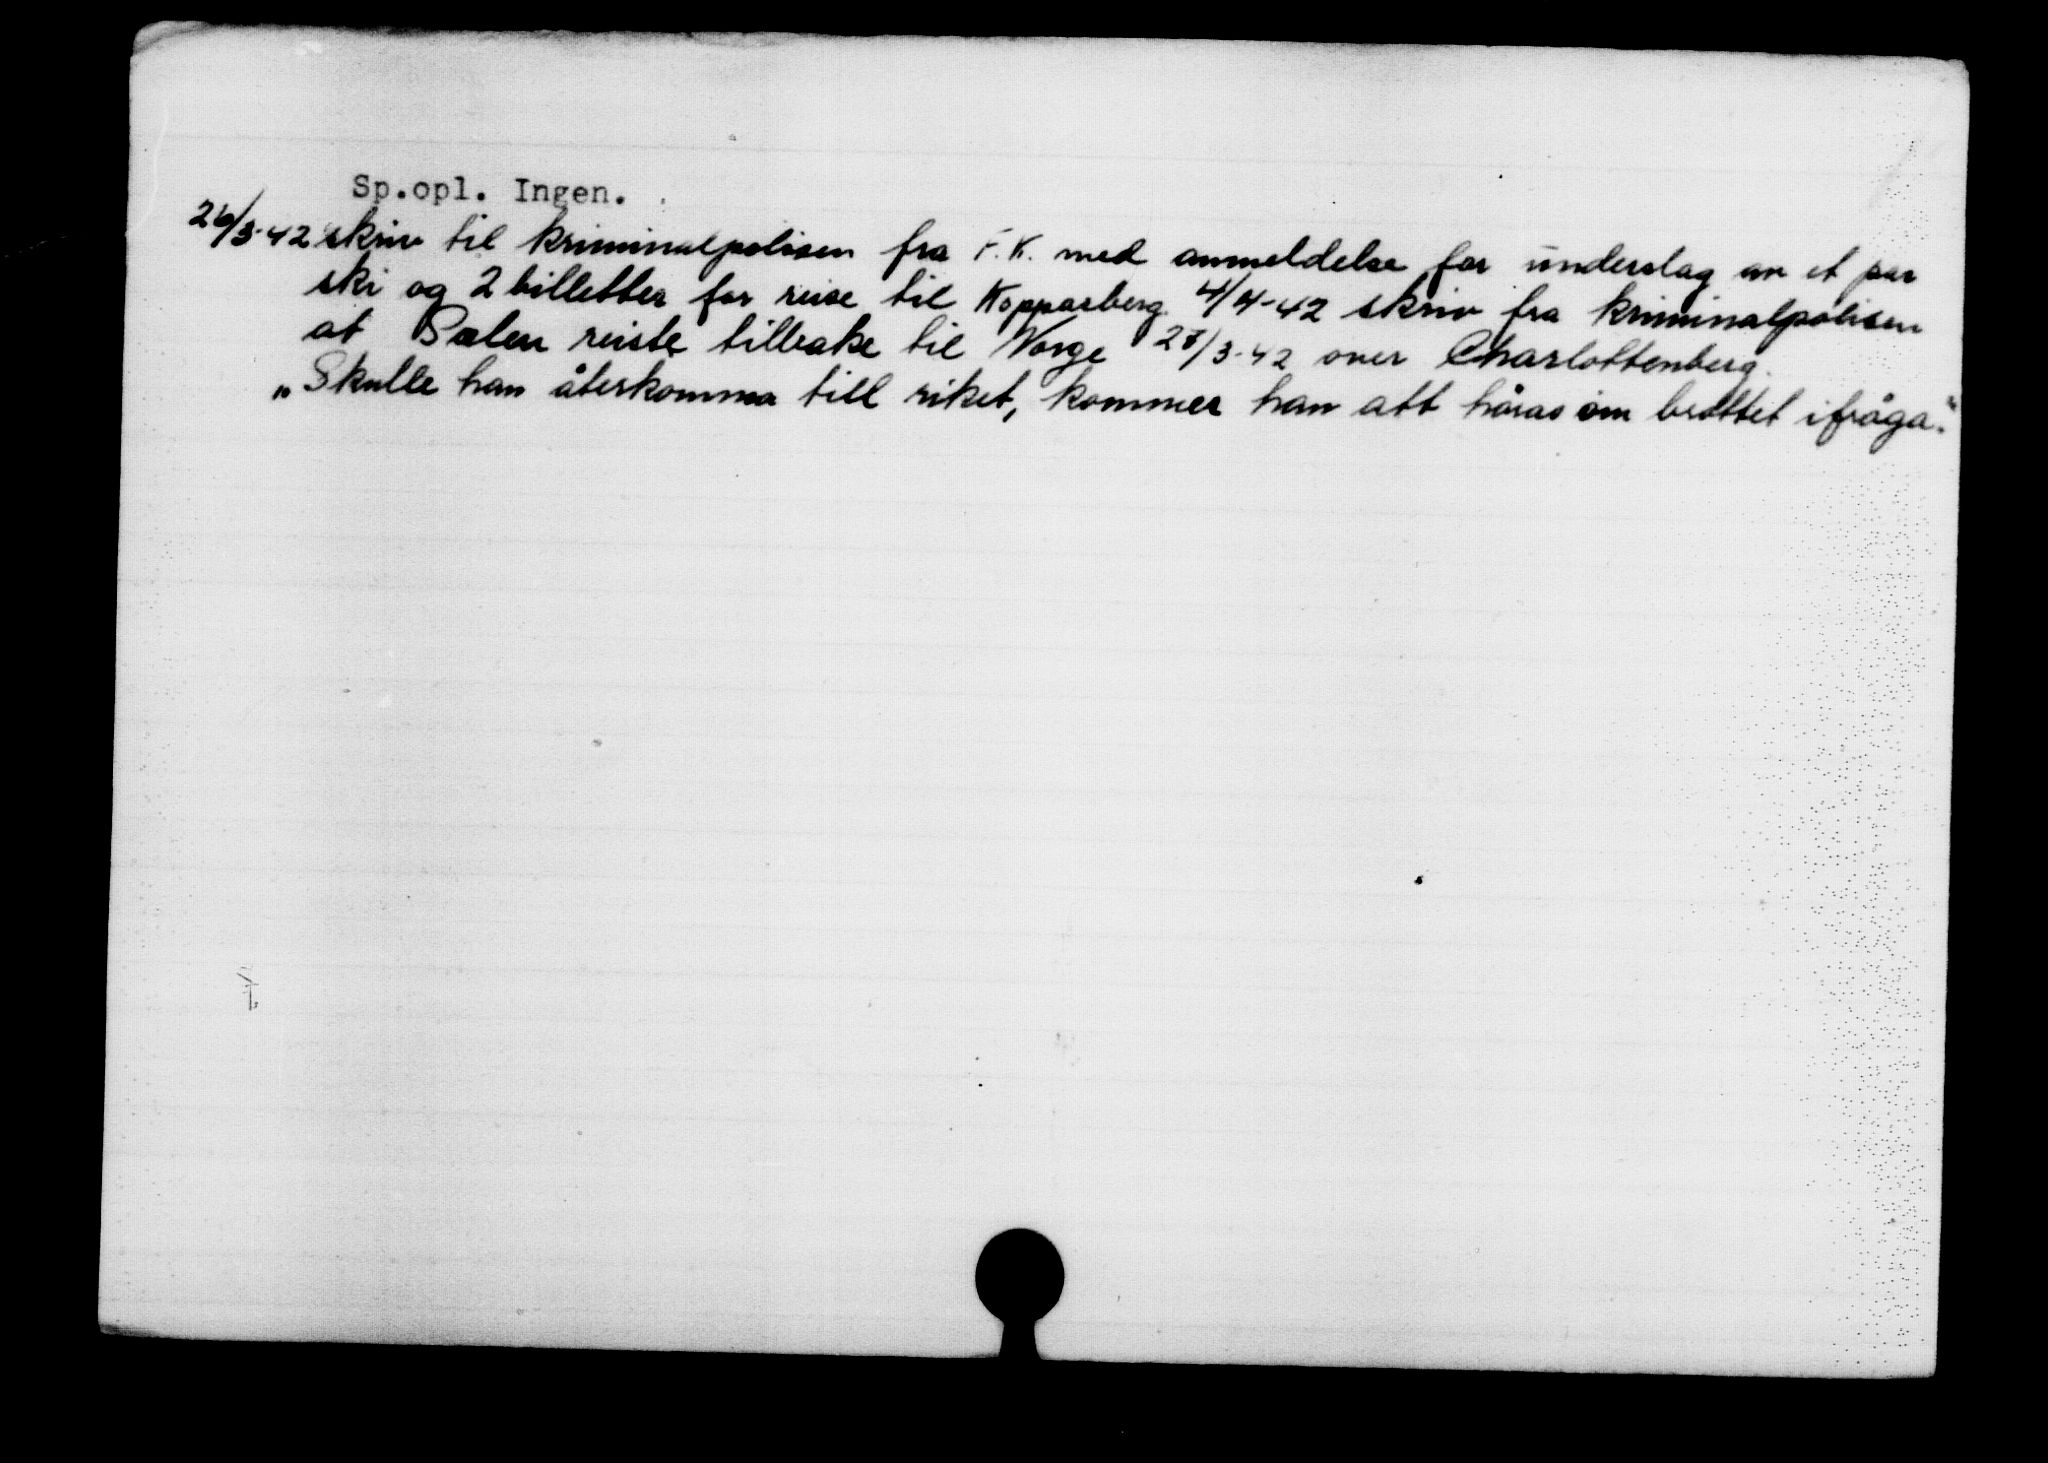 Sp.opl. Ingen.
26/3-42 skriv til kriminalpolisen fra F.K. med anmeldelse for underslag av et par
ski og 2 billetter for reise til Kopparberg. 4/4-42 skriv fra kriminalpolisen
at Sælen reiste tilbake til Norge 27/3-42 over Charlottenberg.
„Skulle han återkomma till riket, kommer han att höras om brottet ifråga."